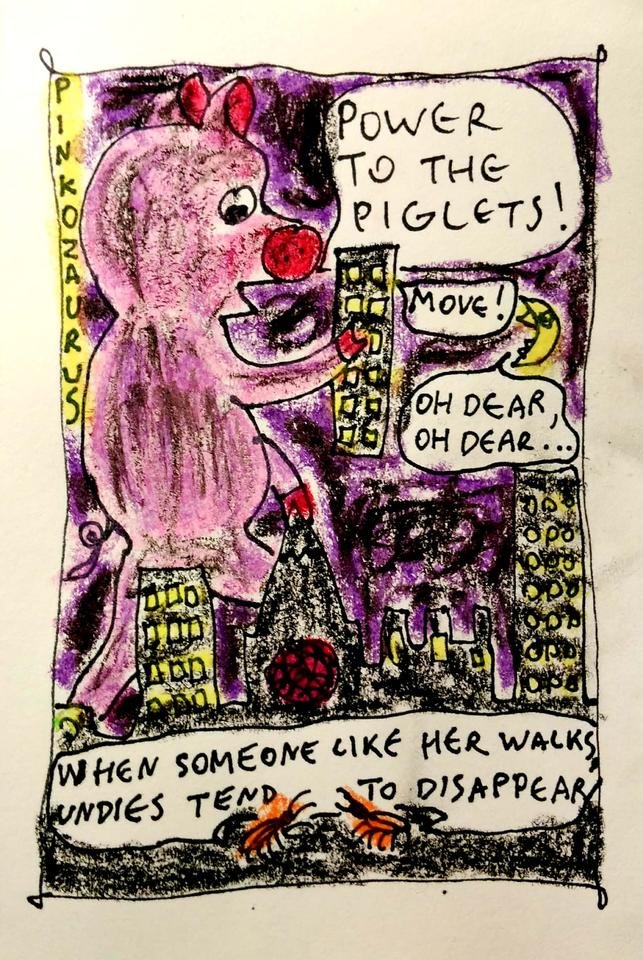 PINKOZAURUS
POWER
TO THE
PIGLETS!
MOVE!
OH DEAR,
OH DEAR...
WHEN SOMEONE LIKE HER WALKS,
UNDIES TEND TO DISAPPEAR